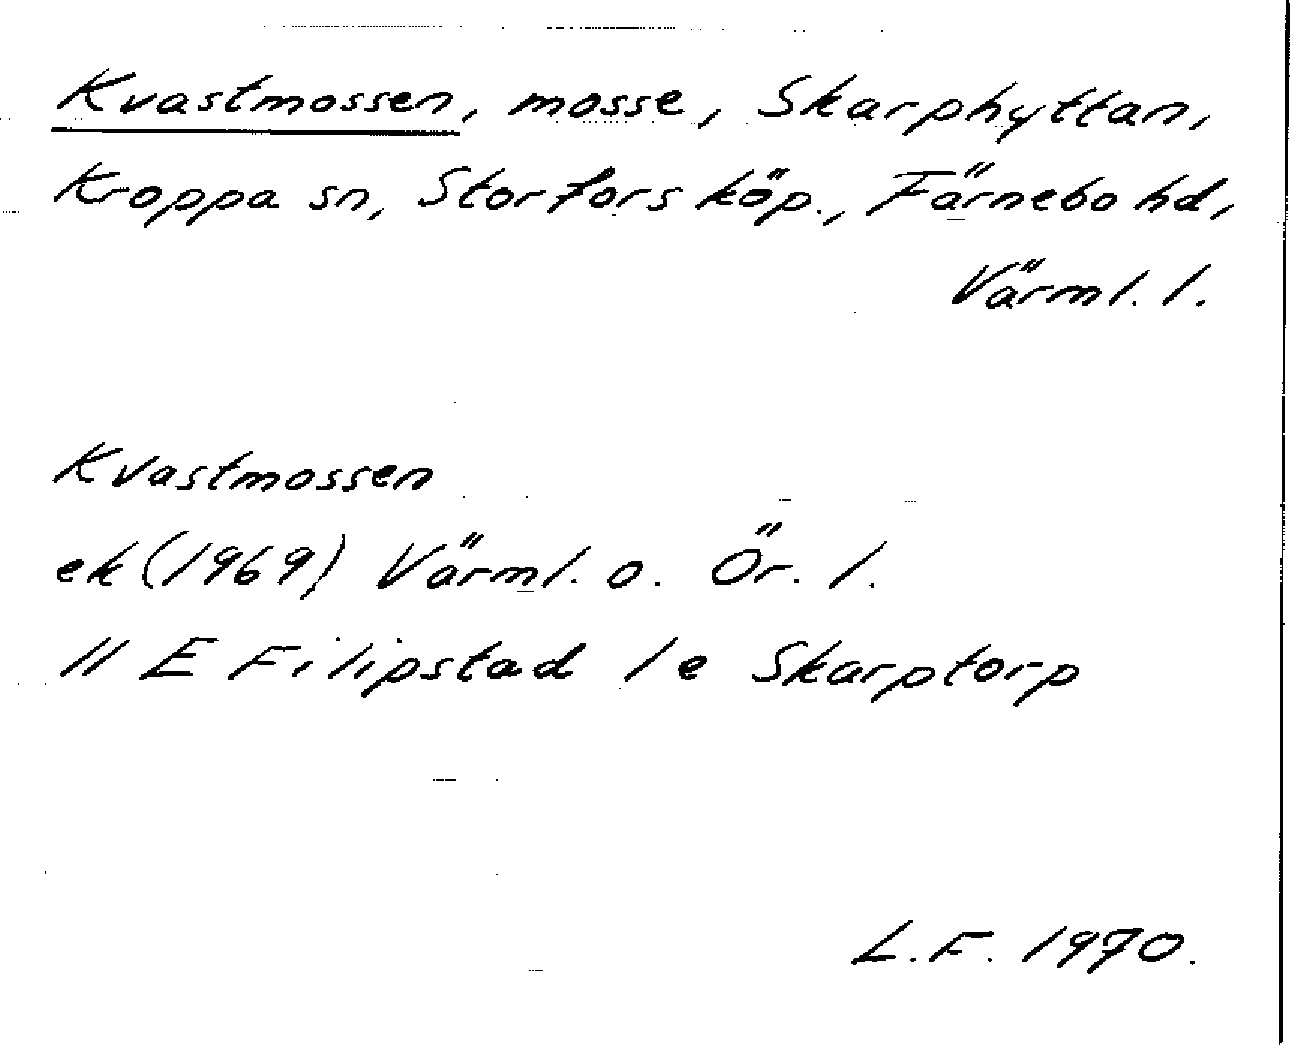 Kvastmossen, mosse, Skarphyttan,
Kroppa sn, Storfors köp., Färnebo hd,
Värml. l.
Kvastmossen
ek (1969) Värml. o. Ör. l.
11 E Filipstad 1e Skarptorp
L.F. 1970.